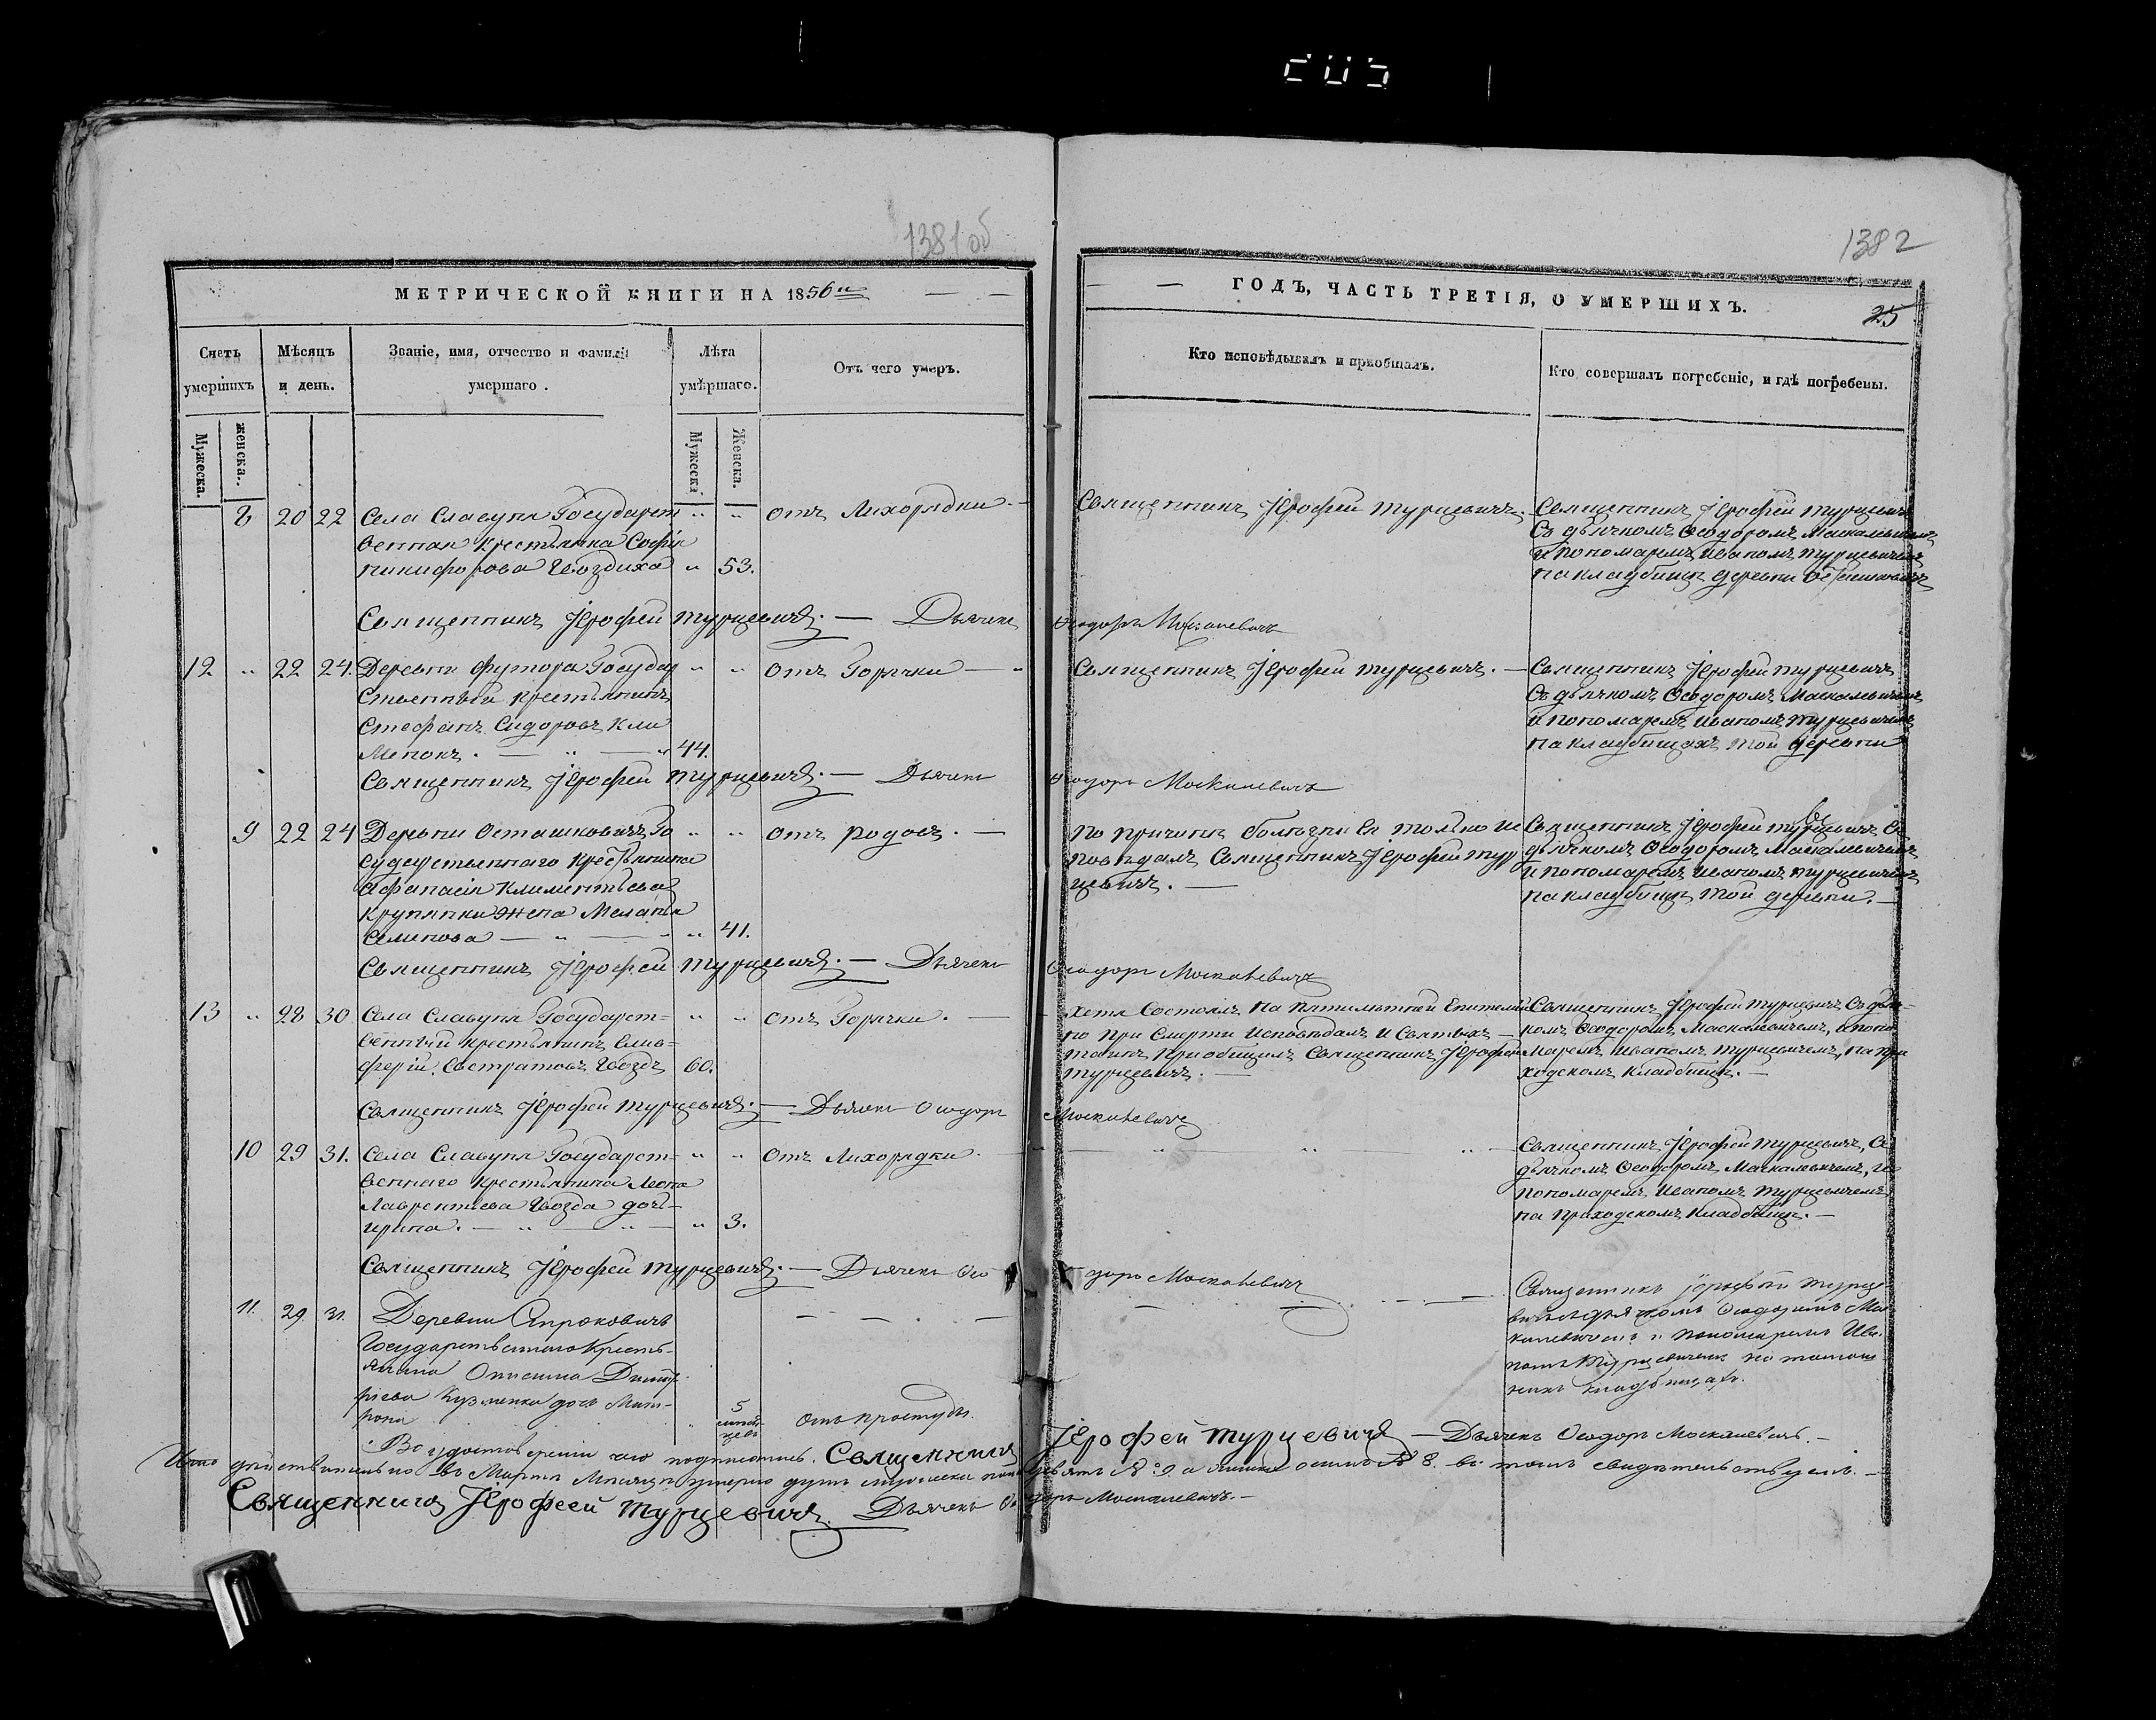 1381об
1382
МЕТРИЧЕСКОЙ КНИГИ НА 1856й
ГОДЪ, ЧАСТЬ ТРЕТІЯ, О УМЕРШИХЪ.
25
Счетъ умершихъ
Мѣсяцъ и день.
Званіе, имя, отчество и фамилія умершаго.
Лѣта умершаго.
Отъ чего умеръ.
Кто исповѣдывалъ и пріобщалъ.
Кто совершалъ погребеніе, и гдѣ погребены.
Мужеска.
женска.
Мужеска
Женска.
8 20 22 Села Славупя Государст отъ Лихорядки
венная крестьянка Софія
Никифорова Гвоздиха 53.
Священникъ Іерофей Турцевичъ.
Священникъ Іерофей Турцевичъ
Съ дьячкомъ Ѳеодоромъ Маскалевичемъ
и пономаремъ Иваномъ Турцевичемъ
на кладбищѣ деревни
Священникъ Іерофей Турцевичъ. — Дьячекъ Ѳеодоръ Москалевичъ
12 22 24. Деревни Футора Государ отъ Горячки
ственный крестьянинъ
Стефанъ Сидоровъ Кли
менокъ. 44.
Священникъ Іерофей Турцевичъ.
Священникъ Іерофей Турцевичъ
Съ дьячкомъ Ѳеодоромъ Маскалевичемъ
и пономаремъ Иваномъ Турцевичемъ
на кладбищахъ той деревни
Священникъ Іерофей Турцевичъ. — Дьячекъ Ѳеодоръ Москалевичъ
9 22 24 Деревни Осташковичъ Го отъ родовъ.
сударственнаго крестьянина
Афанасія Климентьева
Крупянки жена Меланія
Семенова 41.
По причинѣ болѣзни Ея только ис
повѣдалъ Священникъ Іерофей Тур
цевичъ.
Священникъ Іерофей Турцевичъ Съ
дьячкомъ Ѳеодоромъ Маскалевичемъ
и пономаремъ Иваномъ Турцевичемъ
на кладбищѣ той деревни.
Священникъ Іерофей Турцевичъ. — Дьячекъ Ѳеодоръ Москалевичъ
13 28 30 Села Славупя Государст= отъ Горячки.
венный крестьянинъ Елев=
ферій Евстратовъ Гвоздъ 60.
хотя Состоялъ на пятилѣтней Епитеміи
но при Смерти Исповѣдалъ и Святыхъ
таинъ Пріобщилъ Священникъ Іерофей
Турцевичъ.
Священникъ Іерофей Турцевичъ Съ дьяч=
комъ Ѳеодоромъ Маскалевичемъ, и поно
маремъ Иваномъ Турцевичемъ, на при
ходскомъ кладбищѣ.
Священникъ Іерофей Турцевичъ. — Дьячекъ Ѳеодоръ Москалевичъ
10 29 31. Села Славупя Государст= отъ Лихорядки.
веннаго крестьянина Леона
Лаврентіева Гвозда дочь
Ирина. 3.
Священникъ Іерофей Турцевичъ, Съ
дьячкомъ Ѳеодоромъ Маскалевичемъ, и
пономаремъ Иваномъ Турцевичемъ
на Приходскомъ кладбищѣ.
Священникъ Іерофей Турцевичъ. — Дьячекъ Ѳеодоръ Москалевичъ
11. 29. 31. Деревни Хоть
Государственнаго Кресть-
янина Онисима Димит
ріева Кузменка дочь Мат-
рона 5 отъ простуды.
Священникъ Іерофей Турце
вичъ съ дьячкомъ Ѳеодоромъ Мос
калевичемъ и пономаремъ Ива
номъ Турцевичемъ на
кладбищахъ.
Въ удостовѣреніи чего подписались. Священникъ Іерофей Турцевичъ — Дьячекъ Ѳеодоръ Москалевичъ.
Что дѣйствительно въ Мартѣ Мѣсяцѣ умерло душъ мужеска пола девять № 9. а осмъ № 8. въ томъ свидѣтельствуемъ.
Священникъ Іерофей Турцевичъ. Дьячекъ Ѳеодоръ Москалевичъ.